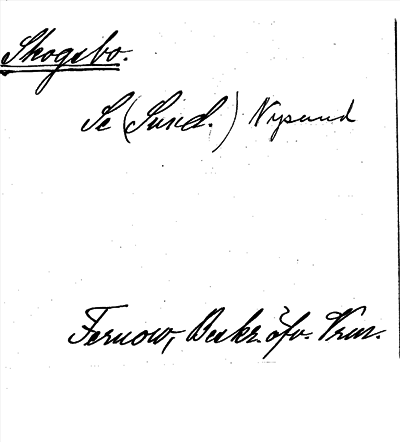 Skogsbo.
Se (Sund.) Nysund
Fernow, Beskr. öfv. Vrml.